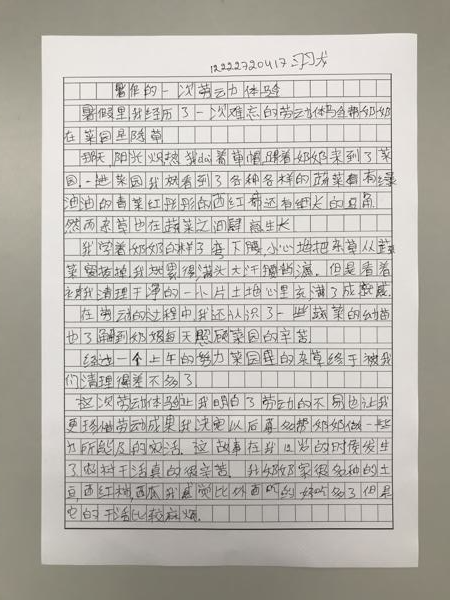 12222720417
暑假的一次劳动体验
暑假里我经历了一次难忘的劳动体验帮奶奶
在菜园里除草
那天,阳光炽热我dai着草帽跟着奶奶来到了菜
园.一进菜园我就看到了各种各样的蔬菜有绿
油油的青菜红彤彤的西红柿还有细长的豆角
然而杂草也在蔬菜之间肆意生长
我学着奶奶的样子弯下腰小心地把杂草从蔬
菜旁拔掉我被累得满头大汗腰酸。但是看着
被我清理干净的一小片土地心里充满了成就感
在劳动的过程中我还认识了一些蔬菜的幼苗
也了解到奶奶每天照顾菜园的辛苦
经过一个上午的努力菜园里的杂草终于被我
们清理得差不多了
这次劳动体验让我明白了劳动的不易也让我
更珍惜劳动成果我决定以后要多帮奶奶做一些
力所能及的家活。这故事在我12岁的时候发生
了农村干活真的很辛苦。我奶奶家很多种的土
豆,西红柿,西瓜我感觉比外面的好吃多了但是
它的干活比较麻烦.